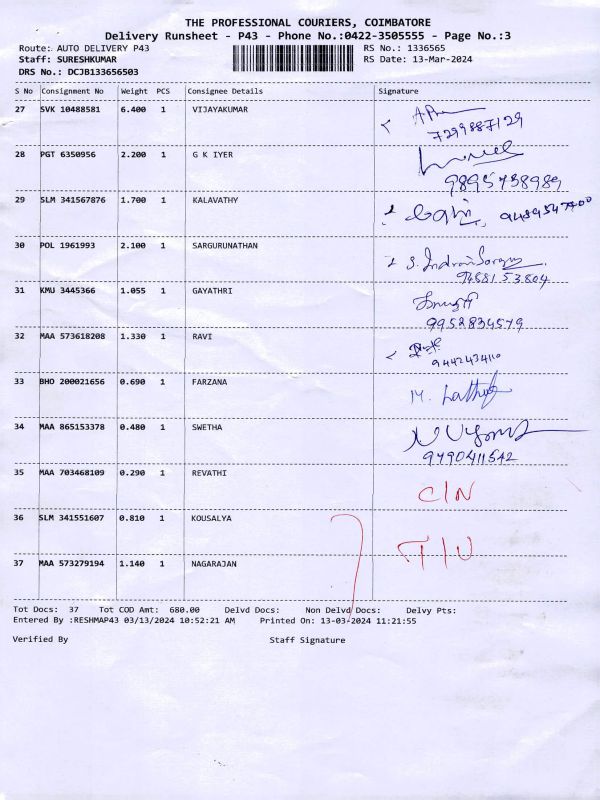 THE PROFESSIONAL COURIERS, COIMBATORE
Delivery Runsheet - P43 - Phone No.:0422-3505555 - Page No.:3
Route: AUTO DELIVERY P43 RS No.: 1336565
Staff: SURESHKUMAR RS Date: 13-Mar-2024
DRS No.: DCJB133656503
S No Consignment No Weight PCS Consignee Details Signature
27 SVK 10488581 6.400 1 VIJAYAKUMAR
7299887129
28 PGT 6350956 2.200 1 G K IYER
9895738989
29 SLM 341567876 1.700 1 KALAVATHY
30 POL 1961993 2.100 1 SARGURUNATHAN
9488153804
31 KMU 3445366 1.055 1 GAYATHRI
9952834579
32 MAA 573618208 1.330 1 RAVI
9442434110
33 BHO 200021656 0.690 1 FARZANA
34 MAA 865153378 0.480 1 SWETHA
9790411542
35 MAA 703468109 0.290 1 REVATHI C/N
36 SLM 341551607 0.810 1 KOUSALYA
37 MAA 573279194 1.140 1 NAGARAJAN
Tot Docs: 37 Tot COD Amt: 680.00 Delvd Docs: Non Delvd Docs: Delvy Pts:
Entered By :RESHMAP43 03/13/2024 10:52:21 AM Printed On: 13-03-2024 11:21:55
Verified By Staff Signature